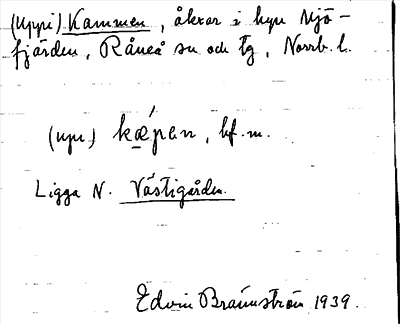 (uppi) Kammen, åkrar i byn Mjö-
fjärden, Råneå sn och tg, Norrb. l.
(upi) kǽpen, bf. m.
Ligga N. Västigården.
Edvin Brännström 1939.